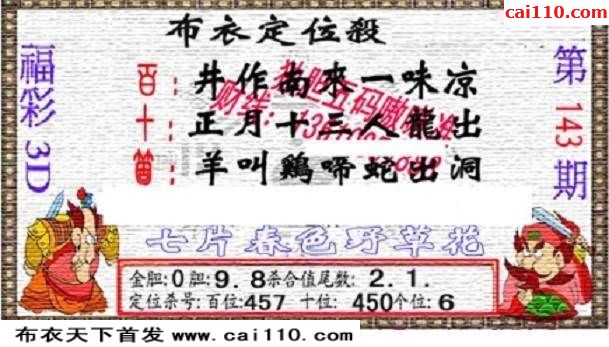 cai110.com
布衣定位殺
福彩3D
第143期
百：井作南來一味凉
十：正月十三人龍出
首：羊叫鷄啼蛇出洞
七片春色野草花
金胆:0胆:9.8杀合值尾数:2.1.
定位杀号:百位:457 十位:450个位:6
布衣天下首发 www.cai110.com